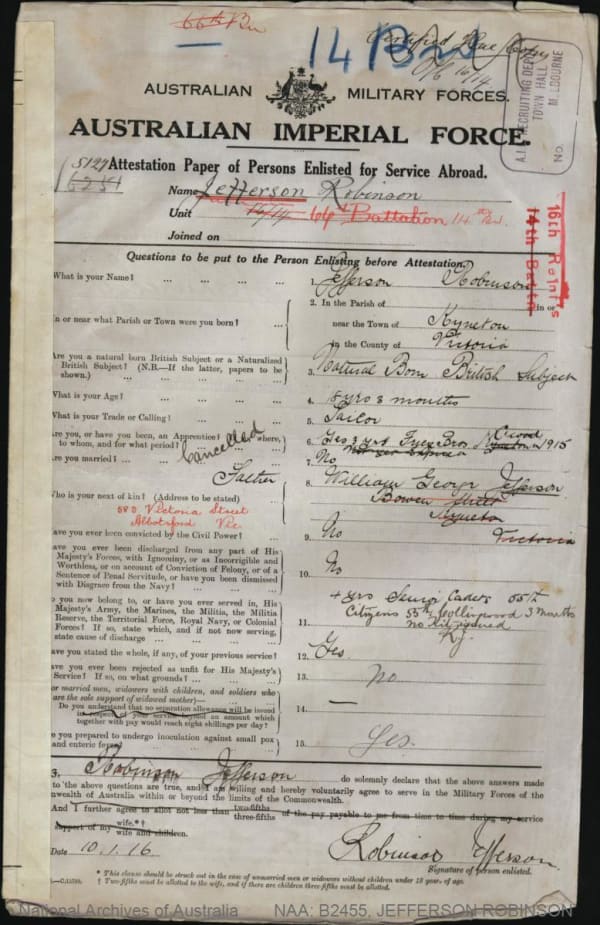 66th Bn
14 Bn
Certified True Copy
16/14
AUSTRALIAN MILITARY FORCES.
A.I.F. RECRUITING DEPOT
TOWN HALL
MELBOURNE
No.
AUSTRALIAN IMPERIAL FORCE.
5127
6251
Attestation Paper of Persons Enlisted for Service Abroad.
Name Jefferson Robinson
Unit 16/14 66th Battalion 14th Bn.
Joined on
16th Reinfts
14th Battn
Questions to be put to the Person Enlisting before Attestation.
What is your Name? ... ... ... ...
1. Jefferson Robinson
In or near what Parish or Town were you born? ...
2. In the Parish of in or
near the Town of Kyneton
in the County of Victoria
Are you a natural born British Subject or a Naturalized
British Subject? (N.B.—If the latter, papers to be
shown.) ... ... ... ...
3. Natural Born British Subject
What is your Age? ... ... ... ...
4. yrs 3 months
What is your Trade or Calling? ... ... ...
5. Tailor
Are you, or have you been, an Apprentice? If so, where,
to whom, and for what period? ...
Cancelled
6. Yes 3 yrs Bros 1915
Are you married? ... ...
7. No
Father
Who is your next of kin? (Address to be stated) ...
588 Victoria Street
Abbotsford Vic.
8. William George Jefferson
Bowen Street
Kyneton
Victoria
Have you ever been convicted by the Civil Power? ...
9. No
Have you ever been discharged from any part of His
Majesty's Forces, with Ignominy, or as Incorrigible and
Worthless, or on account of Conviction of Felony, or of a
Sentence of Penal Servitude, or have you been dismissed
with Disgrace from the Navy? ... ...
10. No
Do you now belong to, or have you ever served in, His
Majesty's Army, the Marines, the Militia, the Militia
Reserve, the Territorial Force, Royal Navy, or Colonial
Forces? If so, state which, and if not now serving,
state cause of discharge ... ... ...
11. 4 yrs Senior Cadets 55th
Citizens 55th Collingwood 3 months
R.J.
Have you stated the whole, if any, of your previous service?
12. Yes
Have you ever been rejected as unfit for His Majesty's
Service? If so, on what grounds? ... ...
13. No
(For married men, widowers with children, and soldiers who
are the sole support of widowed mother)—
Do you understand that no separation allowance will be issued
in respect of your service beyond an amount which
together with pay would reach eight shillings per day?
14. —
Are you prepared to undergo inoculation against small pox
and enteric fever? ... ... ...
15. Yes.
3. Robinson Jefferson do solemnly declare that the above answers made
to the above questions are true, and I am willing and hereby voluntarily agree to serve in the Military Forces of the
Commonwealth of Australia within or beyond the limits of the Commonwealth.
And I further agree to allot not less than two-fifths three-fifths of the pay payable to me from time to time during my service
support of my wife.*† wife and children.
Date 10.1.16
Robinson Jefferson.
Signature of person enlisted.
* This clause should be struck out in the case of unmarried men or widowers without children under 18 years of age.
† Two-fifths must be allotted to the wife, and if there are children three-fifths must be allotted.
National Archives of Australia NAA: B2455, JEFFERSON ROBINSON